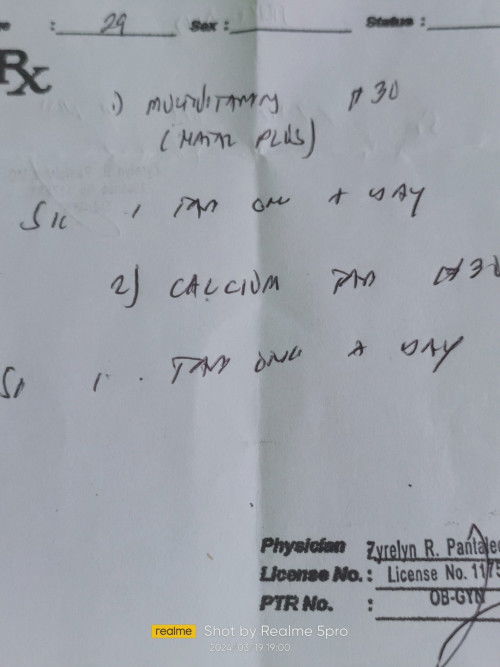 : 29 Sex : Status :
Rx
1) MULTIVITAMINS #30
(NATAL PLUS)
SIG 1 TAB ONCE A DAY
2) CALCIUM TAB #30
SIG 1 . TAB ONCE A DAY
Physician Zyrelyn R.
License No. : License No. 1175
PTR No. : OB-GYN
realme Shot by Realme 5pro
2024/03/19 19:00